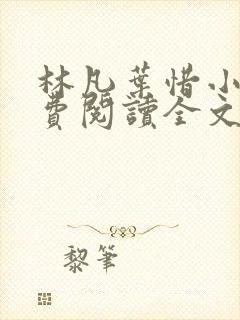 林凡葉惜小
費閱讀全文
黎筆